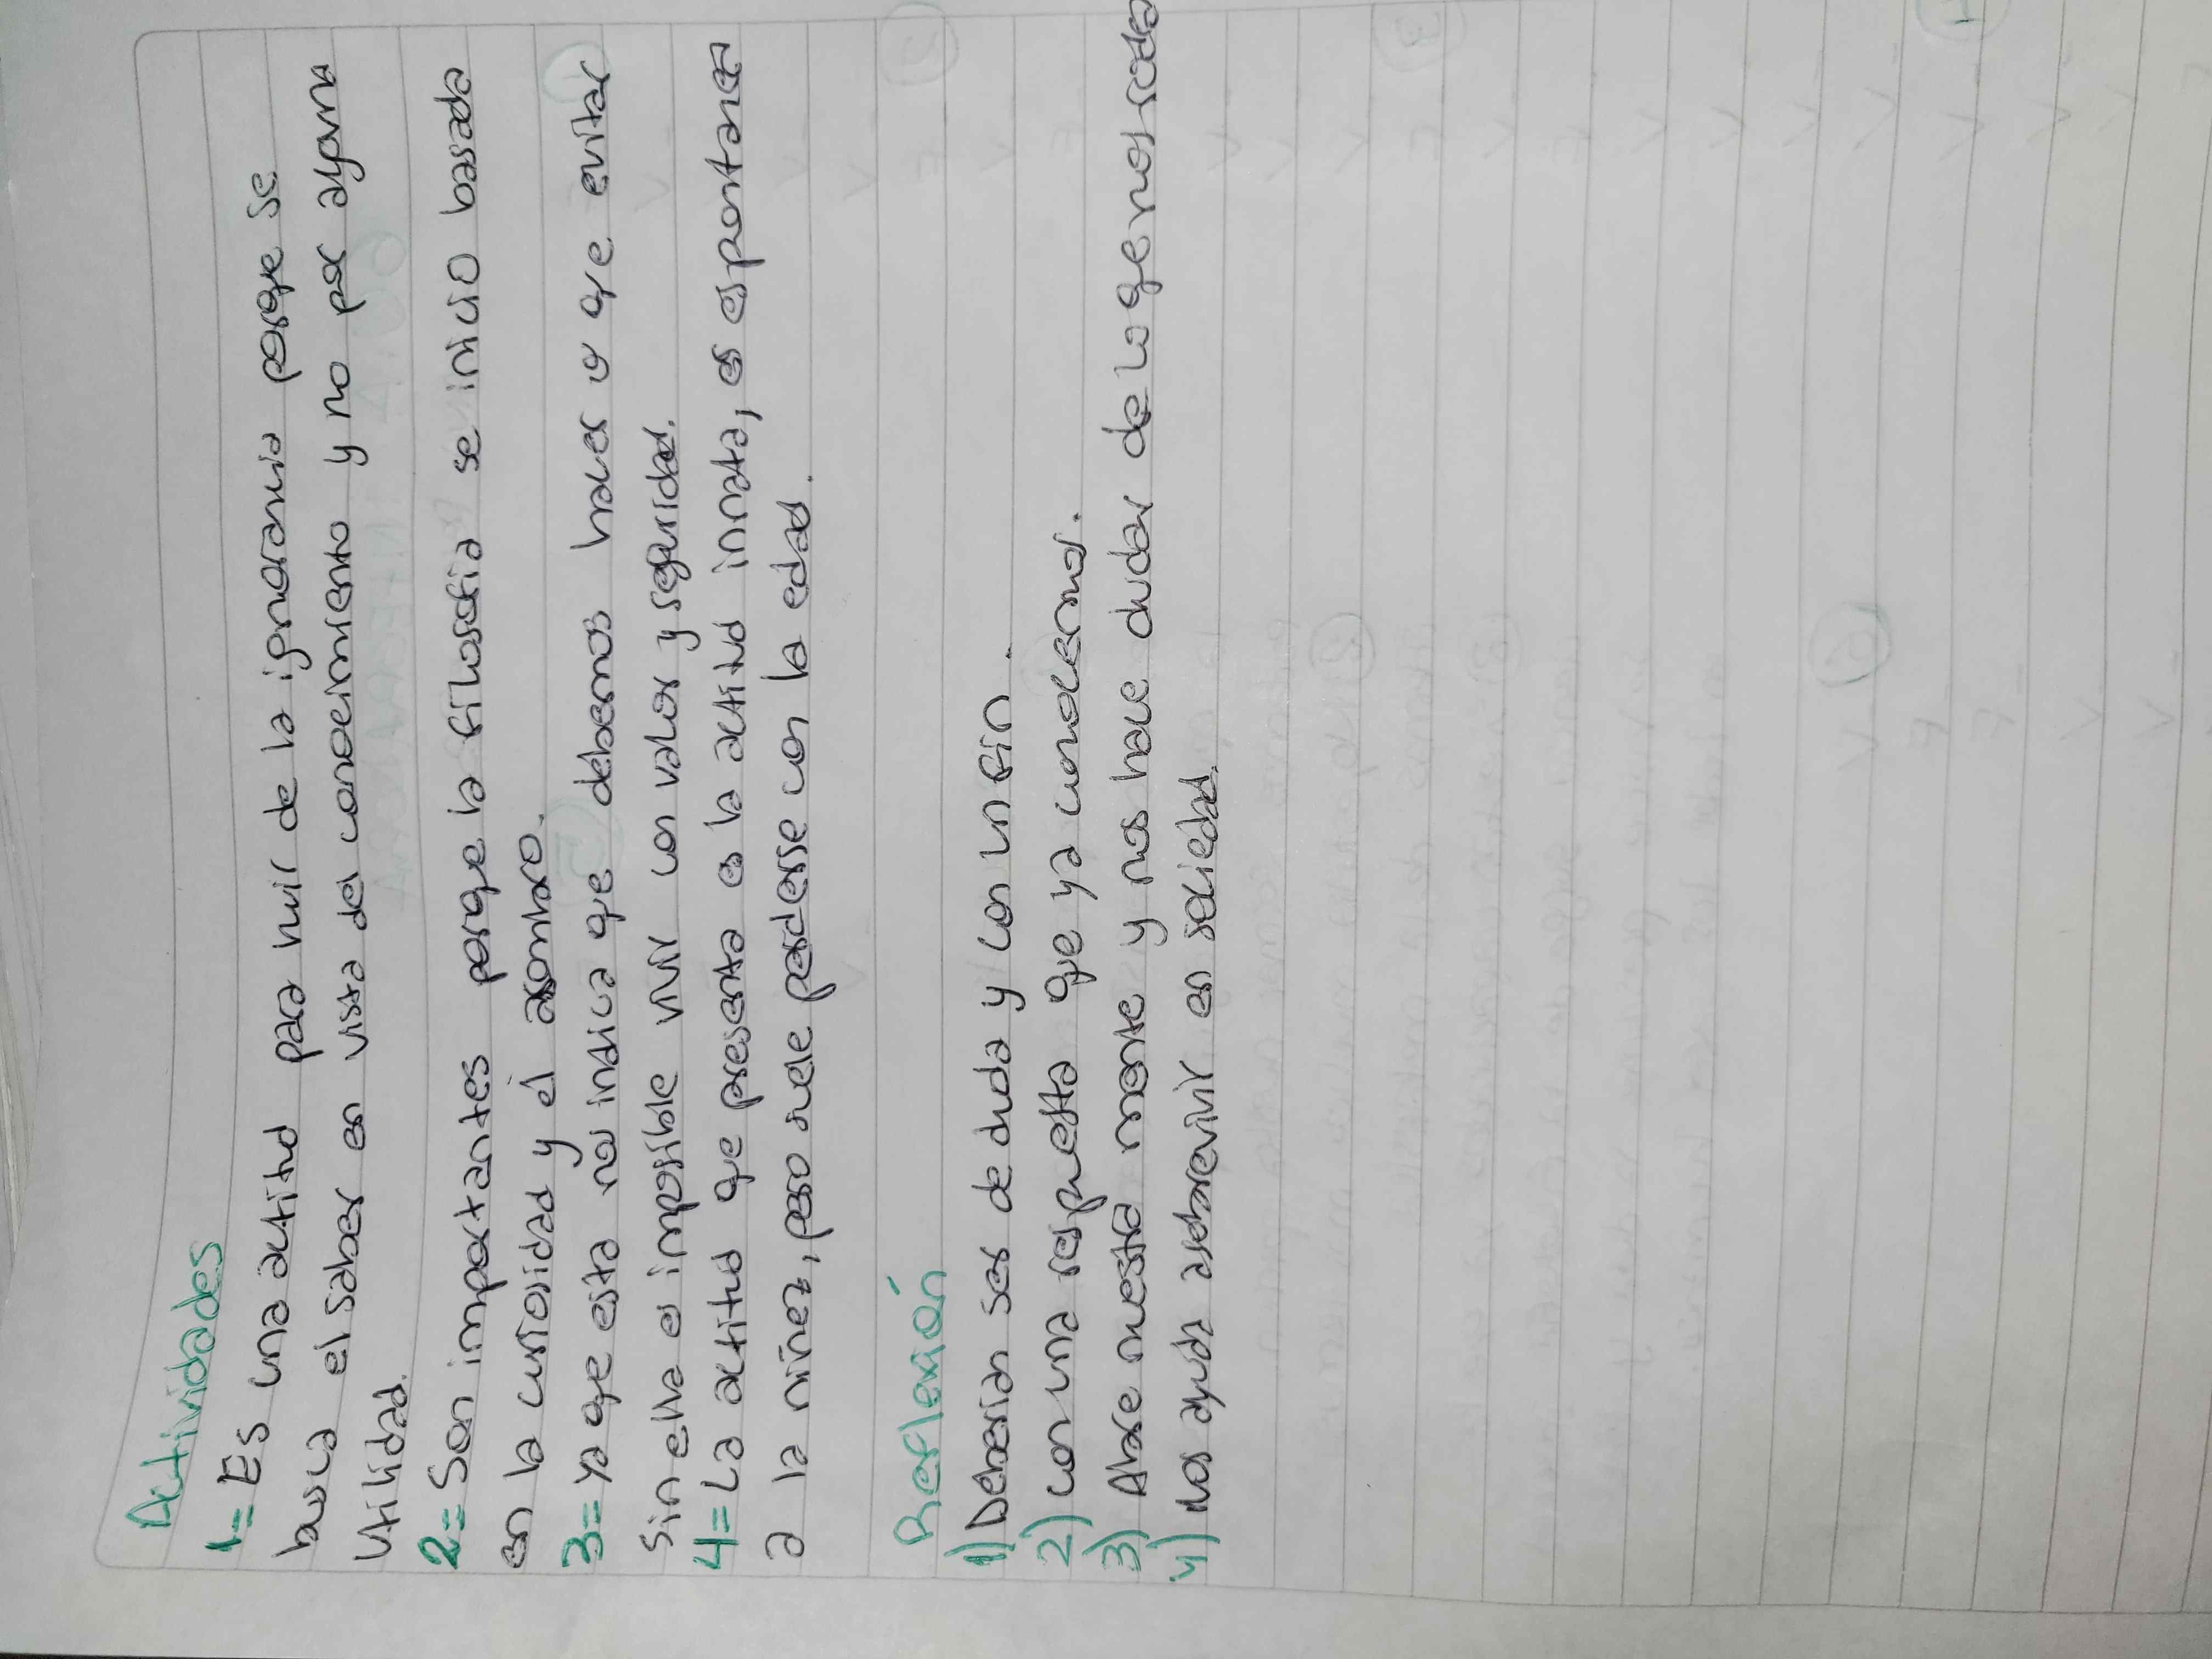 Actividades
1= Es una actitud para huir de la ignorancia porque se
busca el saber en vista del conocimiento y no por alguna
utilidad.
2= Son importantes porque la filosofia se inicio basada
en la curiosidad y el asombro.
3= ya que esta nos indica que debemos hacer o que evitar
Sin ella es imposible vivir con valor y seguridad.
4= La actitud que presenta es la actitud innata, es espontanea
a la niñez, pero suele perderse con la edad.
Reflexión
1) Deberian ser de duda y con un fin.
2) con una respuesta que ya conocemos.
3) Abre nuestra mente y nos hace dudar de lo que nos rodea
4) Nos ayuda a sobrevivir en sociedad.